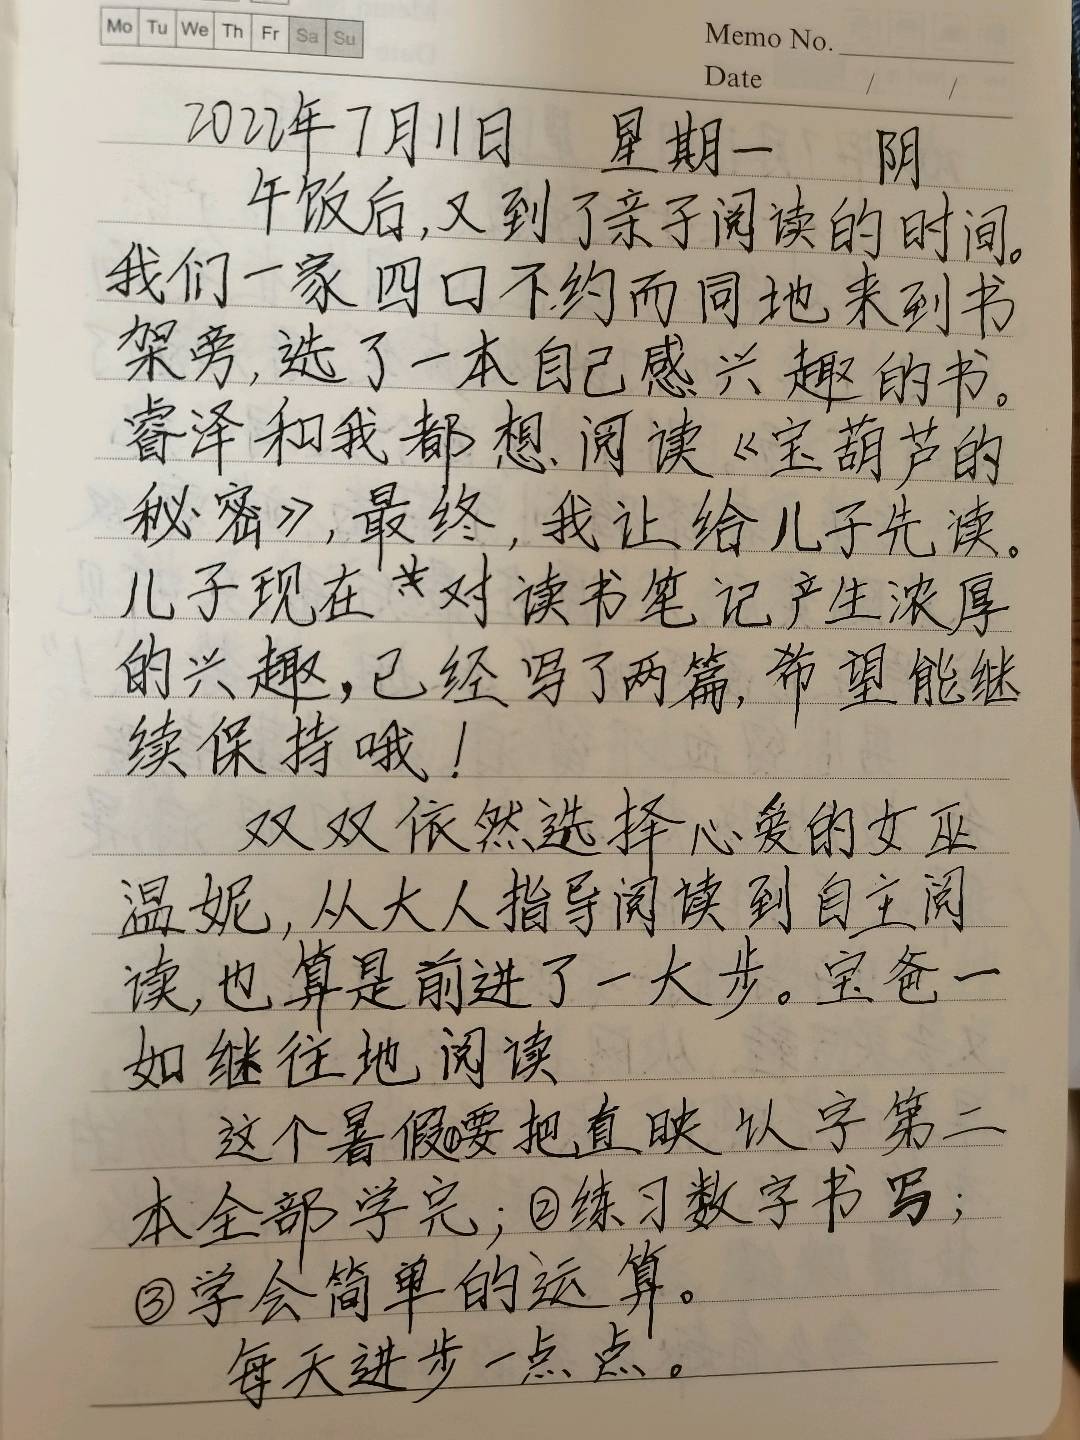 Mo Tu We Th Fr Sa Su
Memo No.
Date / /
2022年7月11日 星期一 阴
午饭后,又到了亲子阅读的时间。
我们一家四口不约而同地来到书
架旁,选了一本自己感兴趣的书。
睿泽和我都想阅读《宝葫芦的
秘密》,最终,我让给儿子先读。
儿子现在对读书笔记产生浓厚
的兴趣,已经写了两篇,希望能继
续保持哦!
双双依然选择心爱的女巫
温妮,从大人指导阅读到自主阅
读,也算是前进了一大步。宝爸一
如继往地阅读
这个暑假①要把直映认字第二
本全部学完;②练习数字书写;
③学会简单的运算。
每天进步一点点。